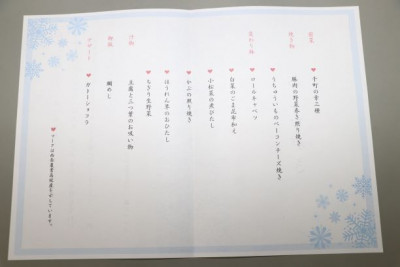 前菜
♥十町の幸二種
焼き物
豚肉の野菜巻き照り焼き
変わり鉢
♥うちゅういものベーコンチーズ焼き
♥ロールキャベツ
♥白菜のごま昆布和え
小松菜の煮びたし
♥かぶの照り焼き
♥ほうれん草のおひたし
♥ちぎり生野菜
汁物
豆腐と三つ葉のお吸い物
御飯
鯛めし
デザート
♥ガトーショコラ
♥マークは西会津